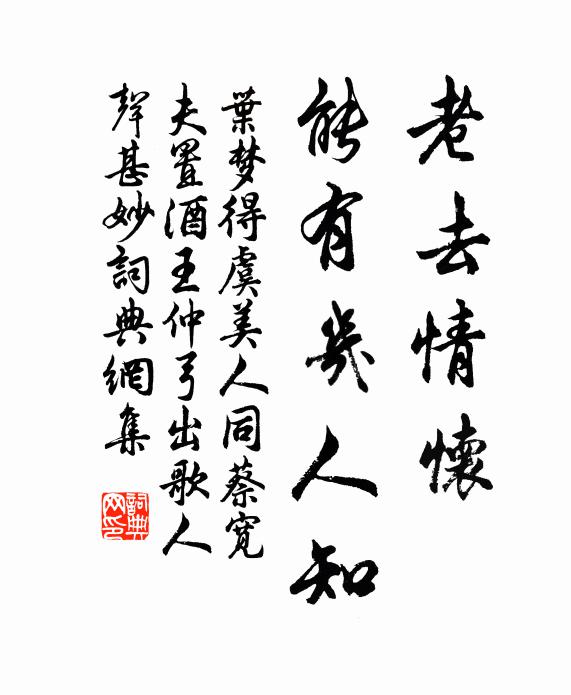 老去情懷
能有幾人知
葉梦得虞美人同蔡寬
夫置酒王仲弓出歌人
聲甚妙詞典網集
詞典
网印